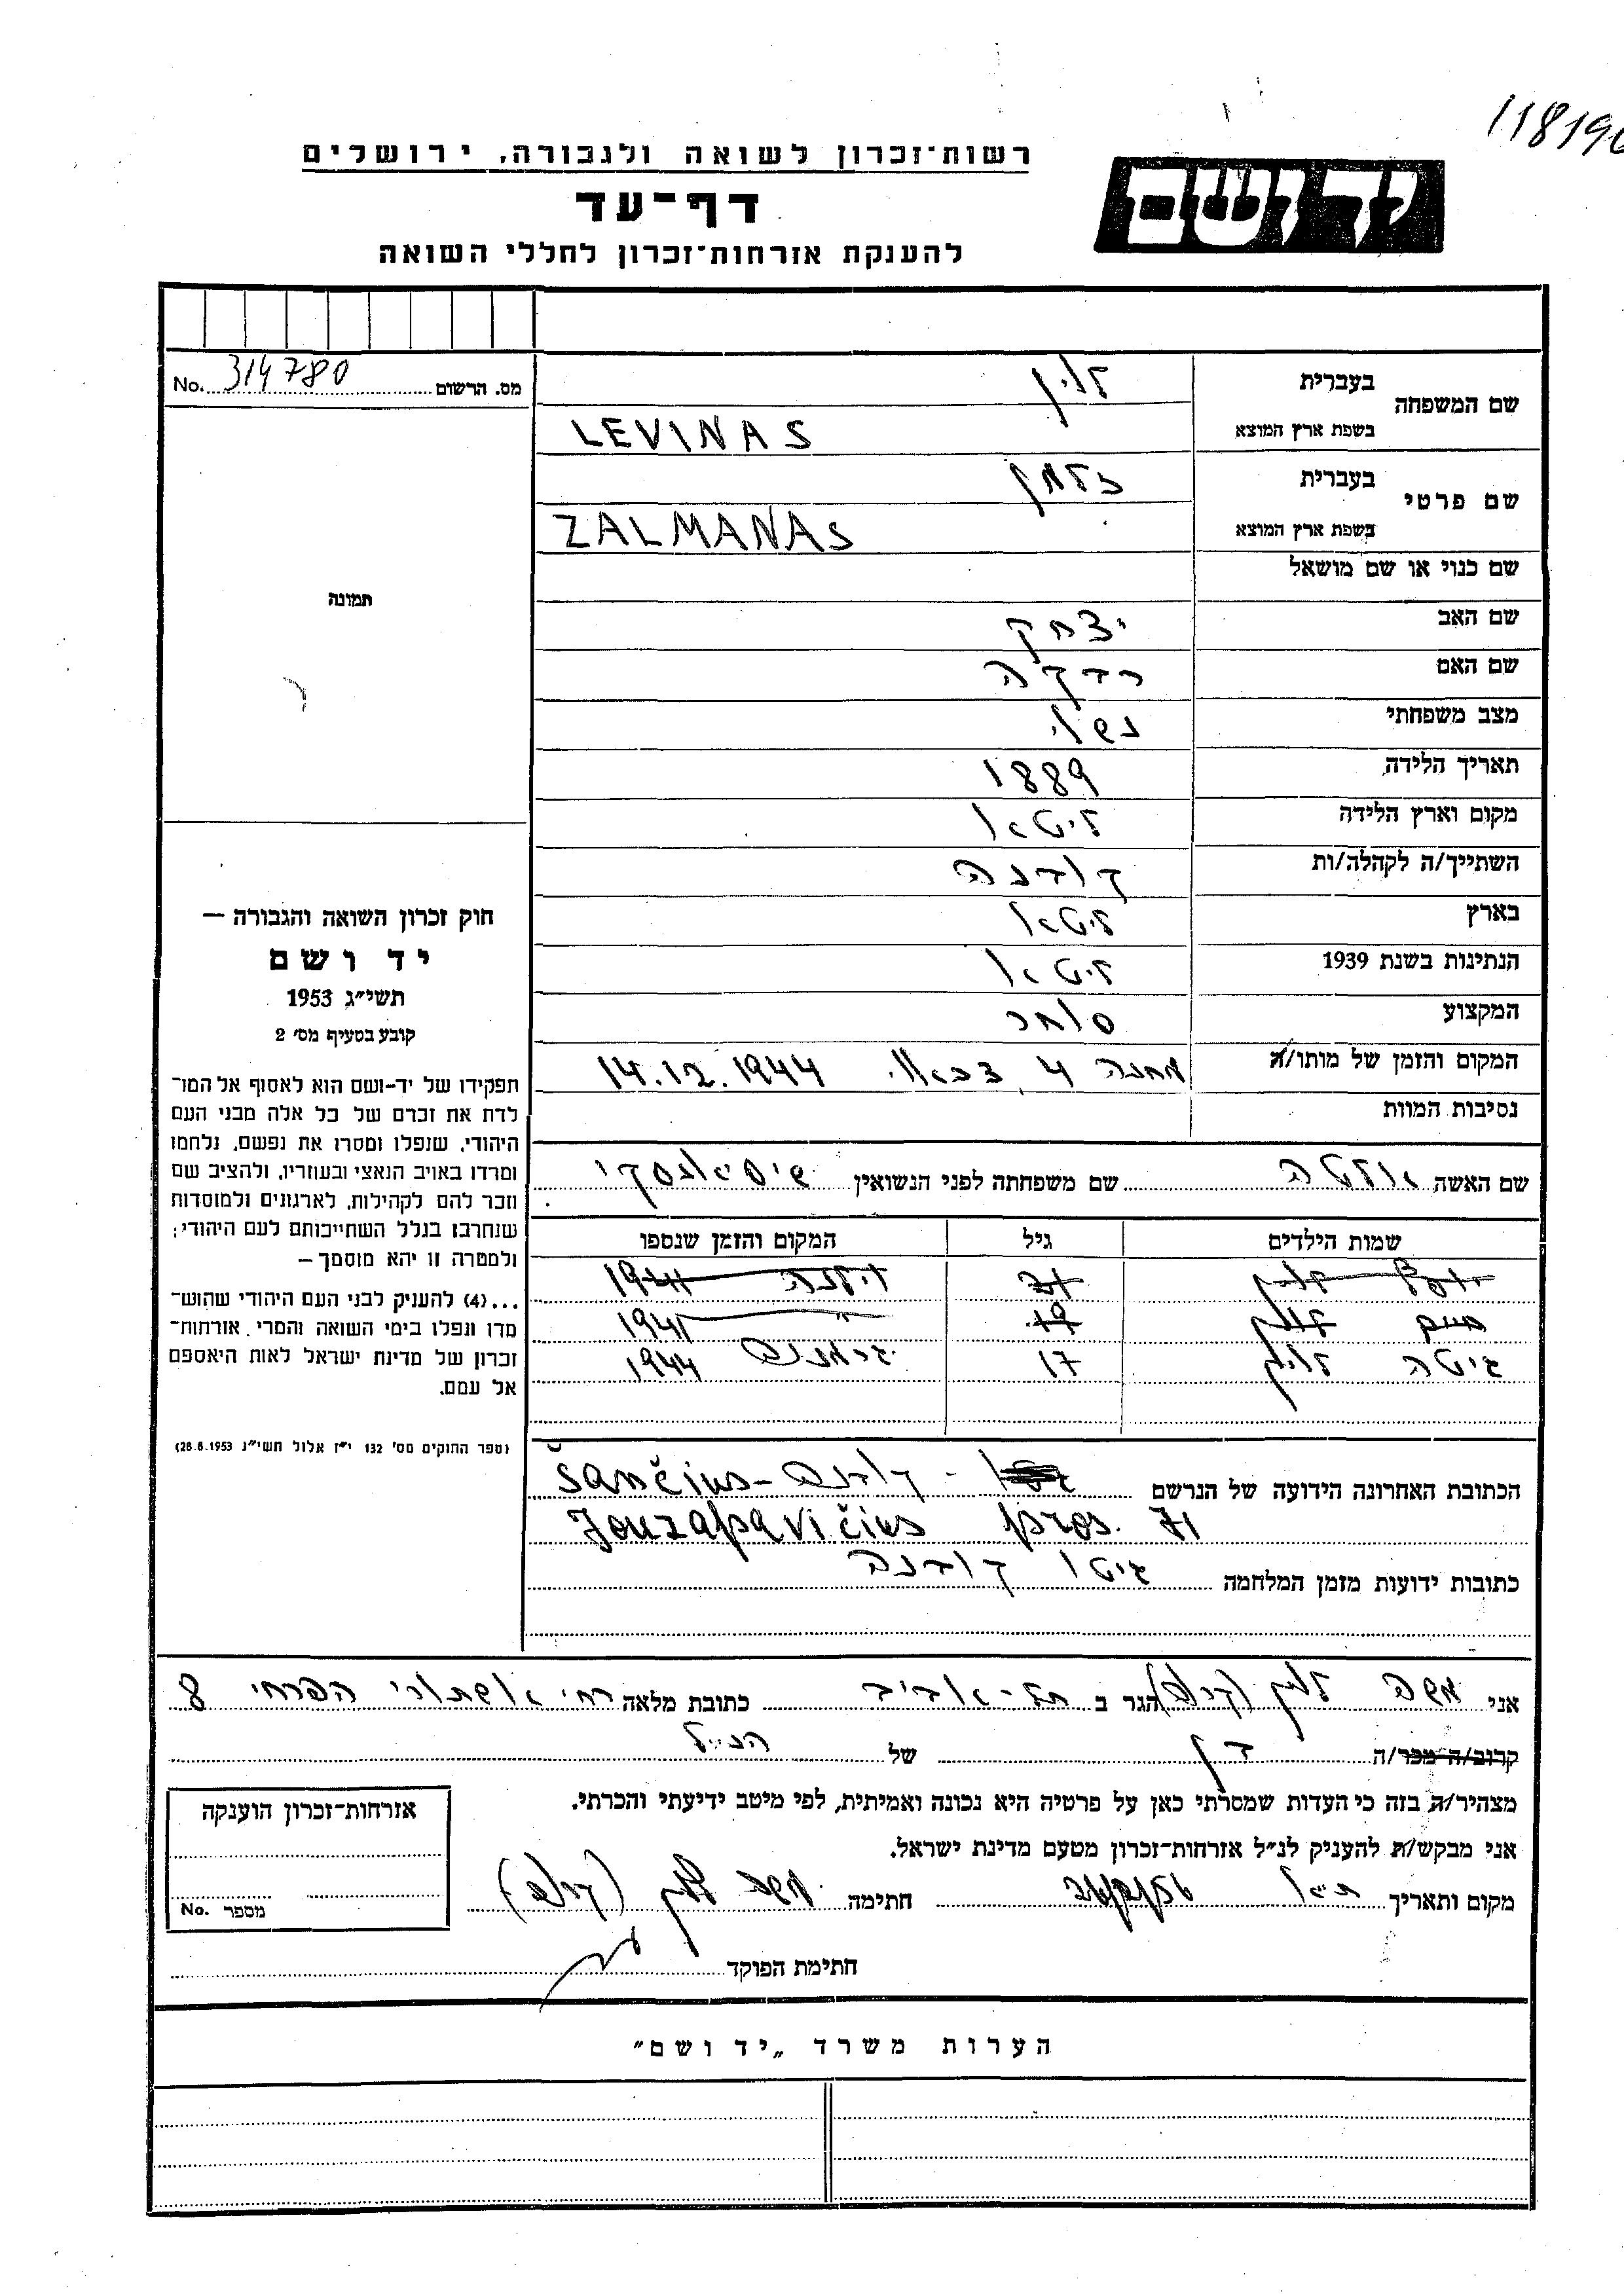 118190
רשות־זכרון לשואה ולגבורה, ירושלים
יד ושם
דף־עד
להענקת אזרחות־זכרון לחללי השואה
מס. הרשום 314780 No.
תמונה
שם המשפחה בעברית לוין
בשפת ארץ המוצא LEVINAS
שם פרטי בעברית זלמן
בשפת ארץ המוצא ZALMANAS
שם כנוי או שם מושאל
שם האב יצחק
שם האם רבקה
מצב משפחתי נשוי
תאריך הלידה 1889
מקום וארץ הלידה ליטא
השתייך/ה לקהלה/ות קובנה
בארץ ליטא
הנתינות בשנת 1939 ליטא
המקצוע סוחר
המקום והזמן של מותו/ה מחנה 4 דכאו 14.12.1944
נסיבות המוות
חוק זכרון השואה והגבורה —
יד ושם
תשי״ג 1953
קובע בסעיף מס׳ 2
תפקידו של יד-ושם הוא לאסוף אל המו־
לדת את זכרם של כל אלה מבני העם
היהודי, שנפלו ומסרו את נפשם, נלחמו
ומרדו באויב הנאצי ובעוזריו, ולהציב שם
וזכר להם לקהילות, לארגונים ולמוסדות
שנחרבו בגלל השתייכותם לעם היהודי;
ולמטרה זו יהא מוסמך —
...(4) להעניק לבני העם היהודי שהוש־
מדו ונפלו בימי השואה והמרי אזרחות־
זכרון של מדינת ישראל לאות היאספם
אל עמם.
(ספר החוקים מס׳ 132 י״ז אלול תשי״ג 28.8.1953)
שם האשה שם משפחתה לפני הנשואין
שמות הילדים גיל המקום והזמן שנספו
לוין 21 וילנה 1941
חיים לוין 19 1941
גיטה לוין 17 גרמניה 1944
הכתובת האחרונה הידועה של הנרשם קובנה - Šančius
Jouzapavičius pros. 71
כתובות ידועות מזמן המלחמה גיטו קובנה
אני משה לוין הגר ב תל-אביב כתובת מלאה רח׳ אשתורי הפרחי 8
קרוב/ה מכר/ה בן של הנ״ל
מצהיר/ה בזה כי העדות שמסרתי כאן על פרטיה היא נכונה ואמיתית, לפי מיטב ידיעתי והכרתי.
אני מבקש/ת להעניק לנ״ל אזרחות־זכרון מטעם מדינת ישראל.
מקום ותאריך ת״א חתימה משה לוין
חתימת הפוקד
אזרחות־זכרון הוענקה
מספר No.
הערות משרד „יד ושם״